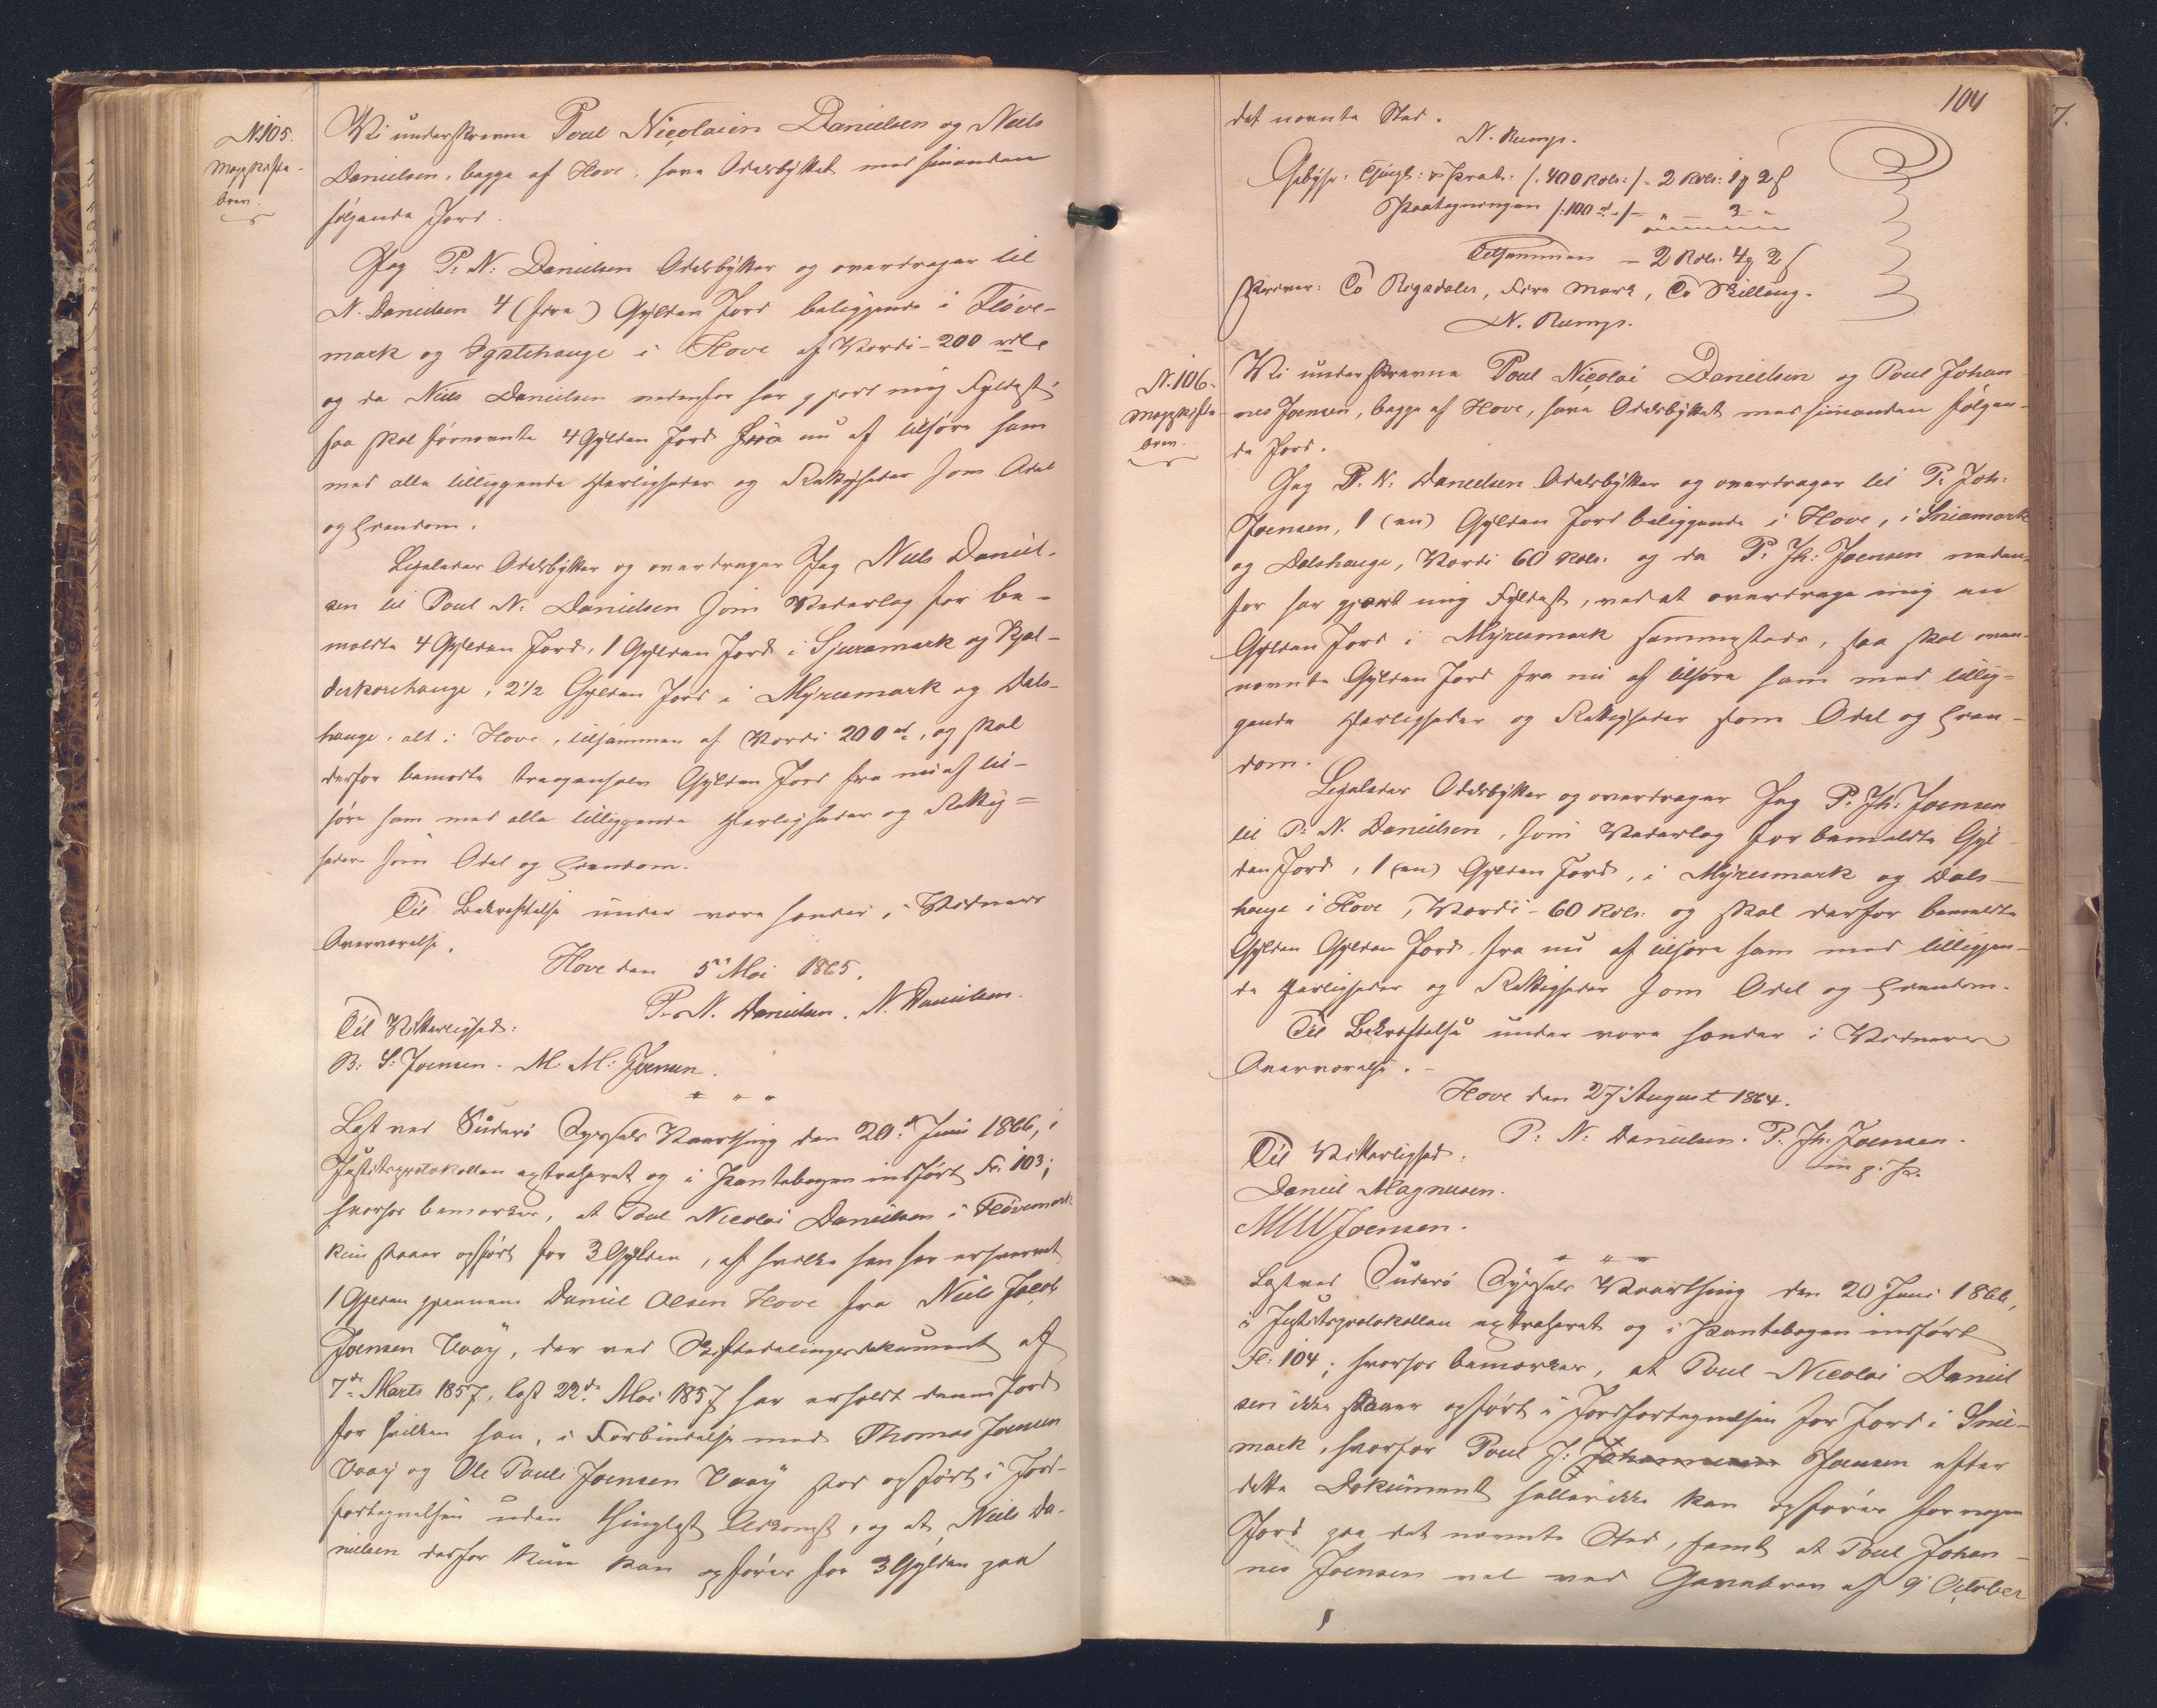 N. 105.
Magskifte-
brev.
Vi underskrevne Poul Nicolaien Danielsen og Niels
Danielsen, begge af Hove, have Odelsbyttet med hinanden
følgende Jord.
Jeg P: N: Danielsen Odelsbytter og overdrager til
N. Danielsen 4 (fire) Gylden Jord beliggende i Fløve-
mark og Ygstehauge i Hove af Værdi - 200 rdl.
og da Niels Danielsen nedenfor har gjort mig Fyldest,
saa skal førnævnte 4 Gylden Jord fra nu af tilhøre ham
med alle tilliggende Herligheder og Rettigheder som Odel
og Eiendom.
Ligeledes Odelsbytter og overdrager Jeg Niels Daniel-
sen til Poul N: Danielsen som Vederlag for be-
meldte 4 Gylden Jord, 1 Gylden Jord i Sjuramark og Kjal-
derskorehauge, 2 1/2 Gylden Jord i Myresmark og Dals-
hauge, alt i Hove, tilsammen af Værdi 200 rd, og skal
derfor bemeldte treogenhalv Gylden Jord fra nu af til-
høre ham med alle tilliggende Herligheder og Rettig=
heder som Odel og Eiendom.
Til Bekræftelse under vore Hænder i Vidners
Overværelse.
Hove den 5te Mai 1865.
P. N. Danielsen. N. Danielsen.
Til Vitterlighed:
B: S: Joensen. M. M: Joensen.
" " "
Læst ved Suderø Syssels Vaarthing den 20de Juni 1866, i
Justitsprotokollen extraheret og i Pantebogen indført Fo: 103;
hvorfor bemærkes, at Poul Nicolai Danielsen i Fløvemark
kun staaer opført for 3 Gylden, af hvilke han har erhvervet
1 Gylden gjennem Daniel Olsen Hove fra Niels Jacob
Joensen Vaay, der ved Skiftedelingsdokument af
7de Marts 1857, læst 22de Mai 1857 har erholdt denne Jord
for hvilken han, i Forbindelse med Thomas Joensen
Vaay og Ole Paule Joensen Vaay stod opført i Jord-
fortegnelsen uden thinglæst Adkomst, og at Niels Da-
nielsen derfor kun kan opføres for 3 Gylden paa
104
det nævnte Sted.
N. Rump.
Gebyhr: Thingl: v Prot. /: 400 Rdl: / - 2 Rdl: 1 2 ß
Paategningen /: 100 rd / - " - 3 "
Tilsammen - 2 Rdl. 4 2 ß
skriver: To Rigsdaler, Fire Mark, To Skilling.
N. Rump.
N. 106.
Magskifte-
brev.
Vi underskrevne Poul Nicolai Danielsen og Poul Johan-
nes Joensen, begge af Hove, have Odelsbyttet med hinanden følgen-
de Jord.
Jeg P. N: Danielsen Odelsbytter og overdrager til P. Joh:
Joensen, 1 (en) Gylden Jord beliggende i Hove, i Sniamark
og Dalshauge, Værdi 60 Rdl. og da P: Jh: Joensen neden-
for har gjort mig Fyldest, ved at overdrage mig en
Gylden Jord i Myresmark sammesteds, saa skal oven-
nævnte Gylden Jord fra nu af tilhøre ham med tillig-
gende Herligheder og Rettigheder som Odel og Eien-
dom.
Ligeledes Odelsbytter og overdrager Jeg P. Jh: Joensen
til P: N. Danielsen, som Vederlag for bemeldte Gyl-
den Jord, 1 (en) Gylden Jord, i Myresmark og Dals-
hauge i Hove, Værdi - 60 Rdl: og skal derfor bemeldte
Gylden Gylden Jord fra nu af tilhøre ham med tilliggen-
de Herligheder og Rettigheder som Odel og Eiendom.
Til Bekræftelse under vore Hænder i Vidners
Overværelse. -
Hove den 27 August 1864.
P: N: Danielsen. P. Jh: Joensen.
m. p. P.
Til Vitterlighed:
Daniel Magnusen.
MM Joensen.
" " "
Læst ved Suderø Syssels Vaarthing den 20 Juni 1866,
i Justitsprotokollen extraheret og i Pantebogen indført
Fo: 104; hvorfor bemærkes, at Poul Nicolai Daniel
sen ikke staaer opført i Jordfortegnelsen for Jord i Snie-
mark, hvorfor Poul J: Johannesen Joensen efter
dette Dokument heller ikke kan opføres for nogen
Jord paa det nævnte Sted, samt at Poul Johan-
nes Joensen vel ved Gavebrev af 9 October